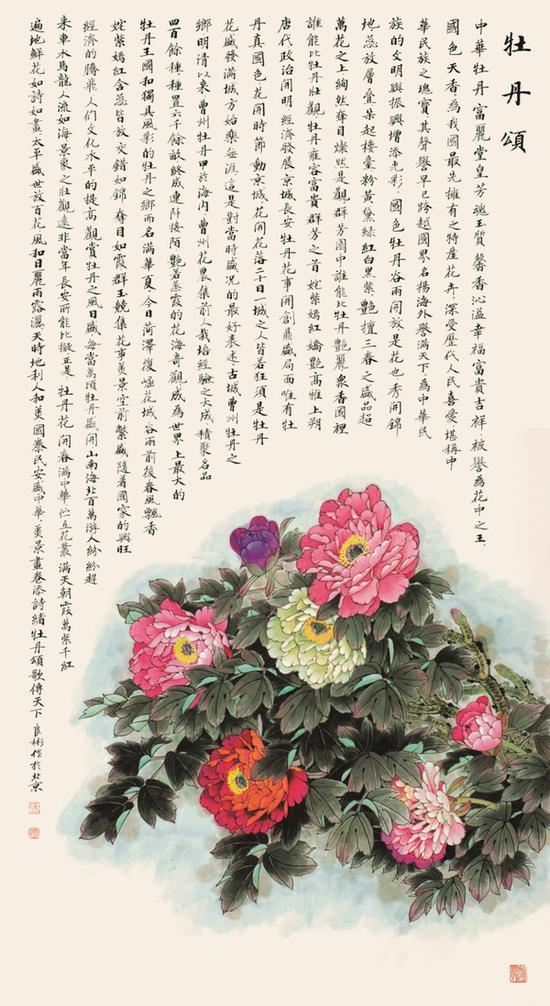 牡丹頌
中華牡丹富麗堂皇芳魂玉質馨香沁溢幸福富貴吉祥被譽為花中之王
國色天香為我國最先擁有之特產花卉深受歷代人民喜愛堪稱中
華民族之瑰寶其聲譽早已跨越國界名揚海外譽滿天下為中華民
族的文明與振興增添光彩國色牡丹谷雨開放是花也秀開錦
地蕊放層疊朵起樓臺粉黃黛綠紅白黑紫艷擅三春之盛品超
萬花之上絢然奪目燦然是觀群芳園中誰能比牡丹艷麗眾香國裡
誰能比牡丹壯觀牡丹雍容富貴群芳之首姹紫嫣紅嬌艷高雅上朔
唐代政治開明經濟發展京城長安牡丹花事開創鼎盛局面唯有牡
丹真國色花開時節動京城花開花落二十日一城之人皆若狂須是牡丹
花盛發滿城方始樂無涯這是對當時盛況的最好表述古城曹州牡丹之
鄉明清以來曹州牡丹甲於海內曹州花農集前人栽培經驗之大成積聚名品
四百餘種種置六千餘畝終成連阡接陌艷若蒸霞的花海奇觀成為世界上最大的
牡丹王國和獨具風彩的牡丹之鄉而名滿華夏今日菏澤復崛花城谷雨前後春風飄香
姹紫嫣紅含蕊皆放交錯如錦奪目如霞群玉競集花事美景空前繁盛隨着國家的興旺
經濟的騰飛人們文化水平的提高觀賞牡丹之風日盛每當萬頃牡丹盛開山南海北百萬游人紛紛趕
來車水馬龍人流如海景象之壯觀遠非當年長安所能比擬正是牡丹花開春滿中華伫立花叢滿天朝霞萬紫千紅
遍地鮮花如詩如畫太平盛世放百花風和日麗雨露灑天時地利人和美國泰民安盛中華美景畫卷添詩緒牡丹頌歌傳天下良彬作於北京